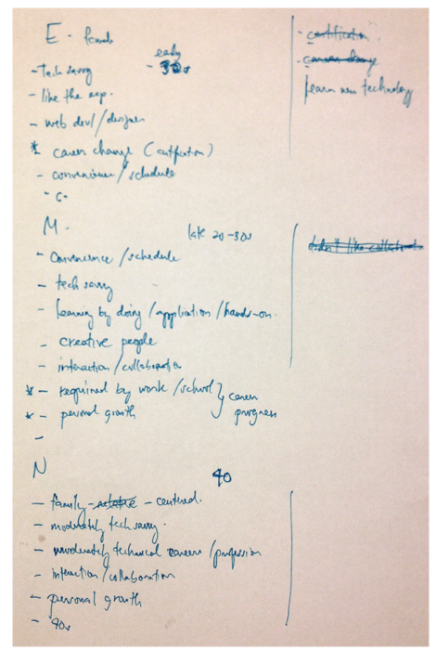 E - female
early
- 30s
- Tech savvy
- like the exp.
- web devl/designer
* career change (certification)
- convenience/schedule
- C-
- certification
- career change
learn new technology
M.
late 20-30s
- Convenience/schedule
- tech savvy
- learning by doing/application/hands-on.
- creative people
- interaction/collaboration
* - required by work/school } career
* - personal growth progress
-
didn't like collaboration
N
40
- family - centered.
- moderately tech savvy.
- moderately technical careers/profession
- interaction/collaboration
- personal growth
- 40s